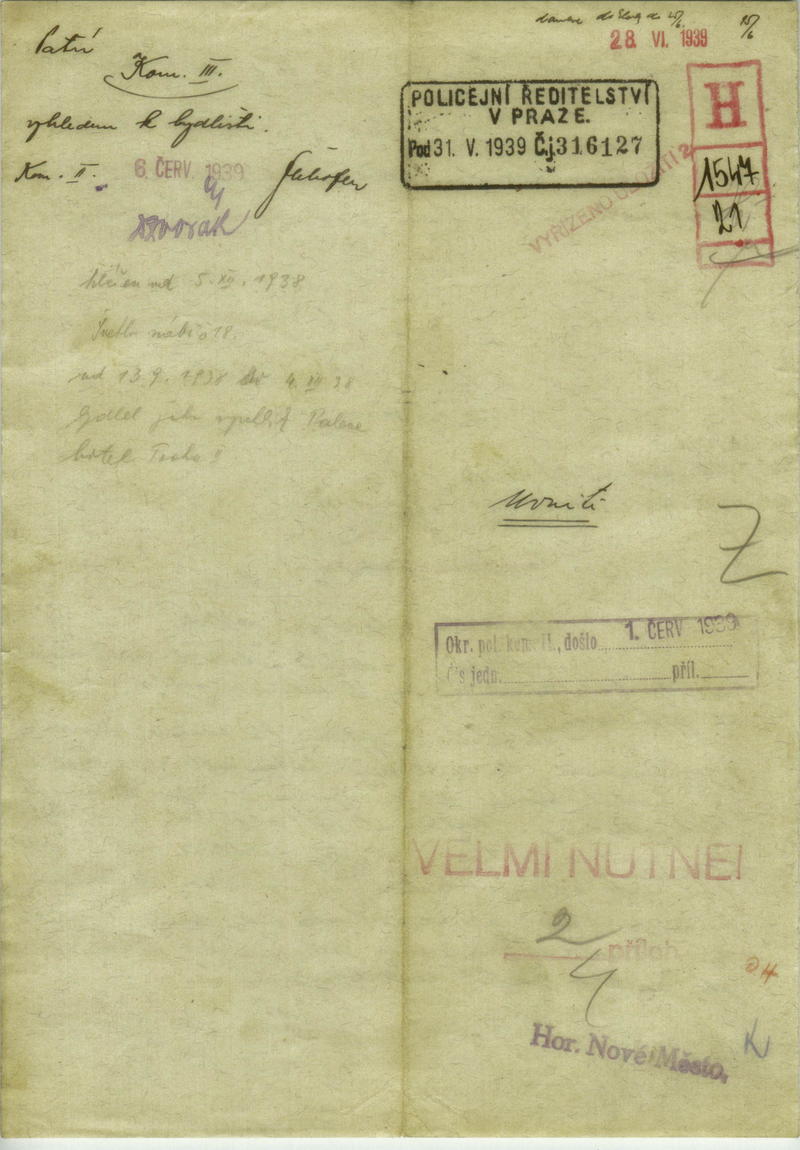 Patří
Kom. III.
vzhledem k bydlišti.
Kom. II.
6. ČERV. 1939
Dvořák
hlášen od 5. XII. 1938
nábř. 18.
od 13.9. 1938 do 4. XII 38
bydlel jako Palace
hotel
28. VI. 1939
POLICEJNÍ ŘEDITELSTVÍ
V PRAZE.
Pod 31. V. 1939 Č.j. 316127
H
1547
21
VYŘÍZENO
Uvnitř
Z
Okr. pol. kom. II., došlo 1. ČERV 1939
Čís jedn. příl.
VELMI NUTNÉ!
2
příloh
4
Hor. Nové Město,